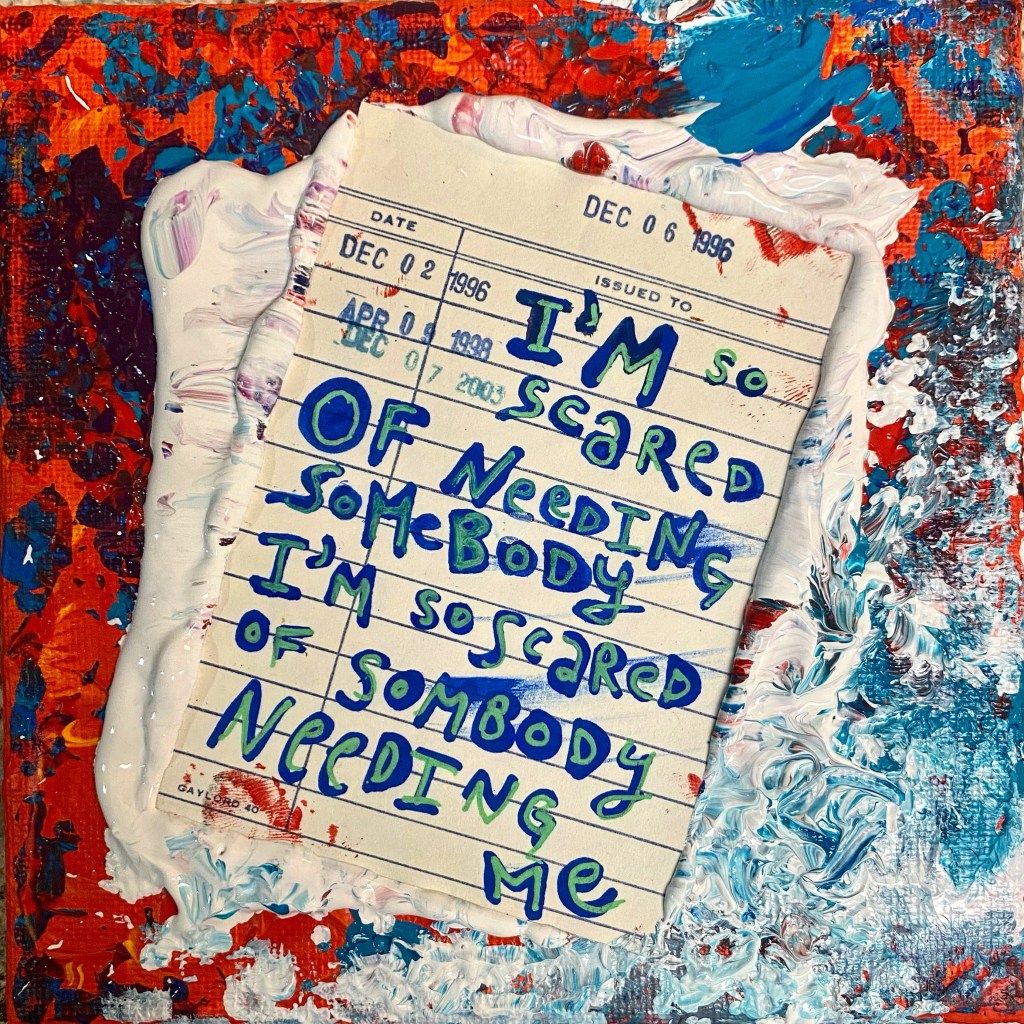 DEC 06 1996
DATE
ISSUED TO
DEC 02 1996
APR 09 1998
DEC 07 2003
I'M SO
SCARED
OF NEEDING
SOMEBODY
I'M SO SCARED
OF SOMBODY
NEEDING
ME
GAYLORD 40